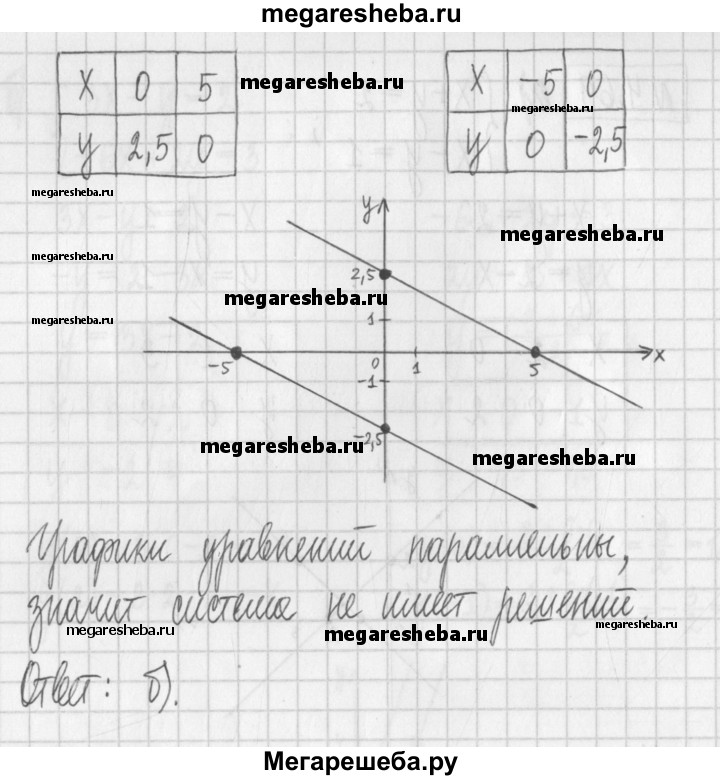 megaresheba.ru
X 0 5
y 2,5 0
megaresheba.ru
X -5 0
megaresheba.ru
y 0 -2,5
megaresheba.ru
megaresheba.ru
y
megaresheba.ru
megaresheba.ru
2,5
megaresheba.ru
megaresheba.ru
1
-5 0 1 5 x
-1
-2,5
megaresheba.ru
megaresheba.ru
Графики уравнений параллельны,
значит система не имеет решений.
megaresheba.ru
megaresheba.ru
megaresheba.ru
Ответ: б).
Мегарешеба.ру